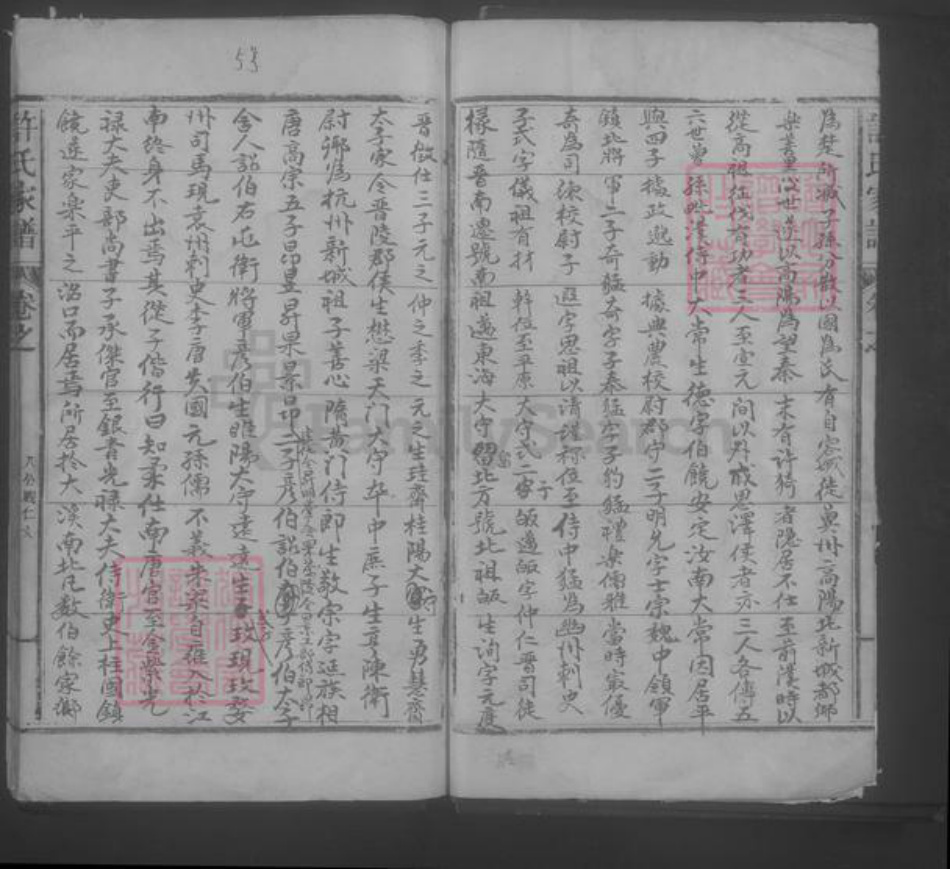 為楚所滅子孫分散以國為氏有自容城徙冀州高陽北新城都鄉
樂善里心世遂以高陽為望秦末有許猗者隱居不仕至前漢時以
從高祖征伐有功者三人至宣元间以外戚恩澤侯者亦三人各傳五
六世曾孫毗漢侍中大常生德字伯饒安定汝南大常因居平
輿四子據政邈勳據典農校尉郡守二子明允字士宗魏中領軍
鎮北將軍二子奇猛奇字子泰猛字子豹猛禮樂儒雅當時最優
奇為司隸校尉子遐字思祖以清洋称位至侍中猛為幽州刺史
子式字儀祖有材幹位至平原大守式二子皈邁皈字仲仁晋司徒
椽隨晋南遷號南祖邁東海大守留北方號北祖皈生詢字元度
晋徵仕三子元之仲之季之元之生珪齋桂陽大守生勇慧齋
太子家令晋陵郡侯生懋梁天门大守卒中庶子生亨陳衛
尉卿為杭州新城祖子善心隋黄门侍郎生敬宗字延族相
唐高宗五子昂昱昇果景昂二子彦伯詔伯彦伯太子
舍人詔伯右屯衛將軍彦伯生睢陽太守遠遠生玫現玫婺
州司馬現袁州刺史李唐失國元孫儒不義朱梁自雍入於江
南終身不出焉其從子偕行曰知柔仕南唐官至金紫光
禄大夫吏部尚書子承傑官至銀青光禄大夫侍衛史上柱國鎮
饒遂家樂平之沿口而居焉所居於大溪南北凡数伯餘家鄉
許氏家譜
卷之一
53